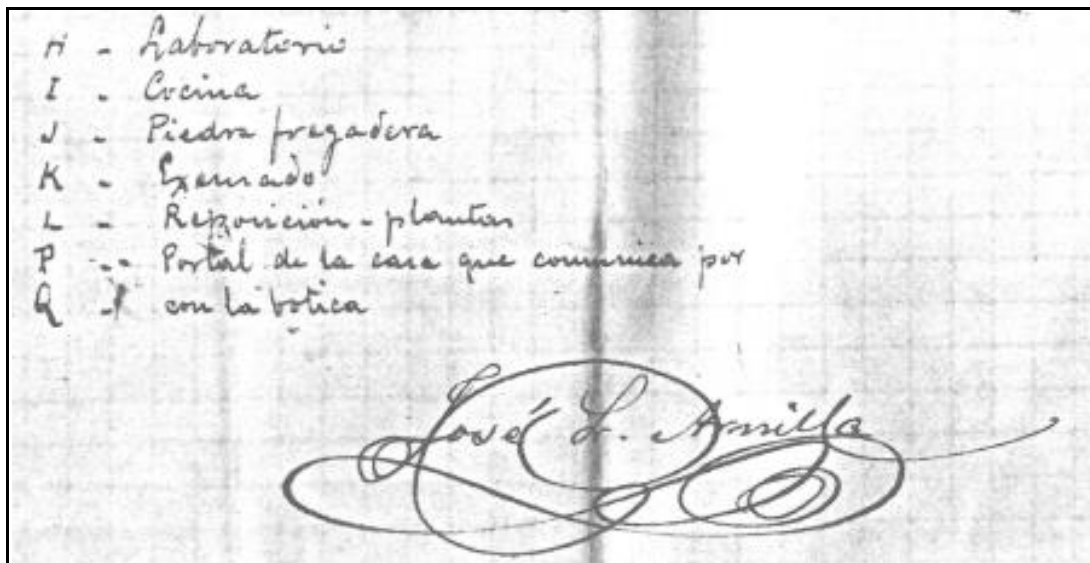 H - Laboratorio
I - Cocina
J - Piedra fregadera
K - Excusado
L - Reposición - plantas
P -- Portal de la casa que comunica por
Q - con la botica
José L. Arnilla